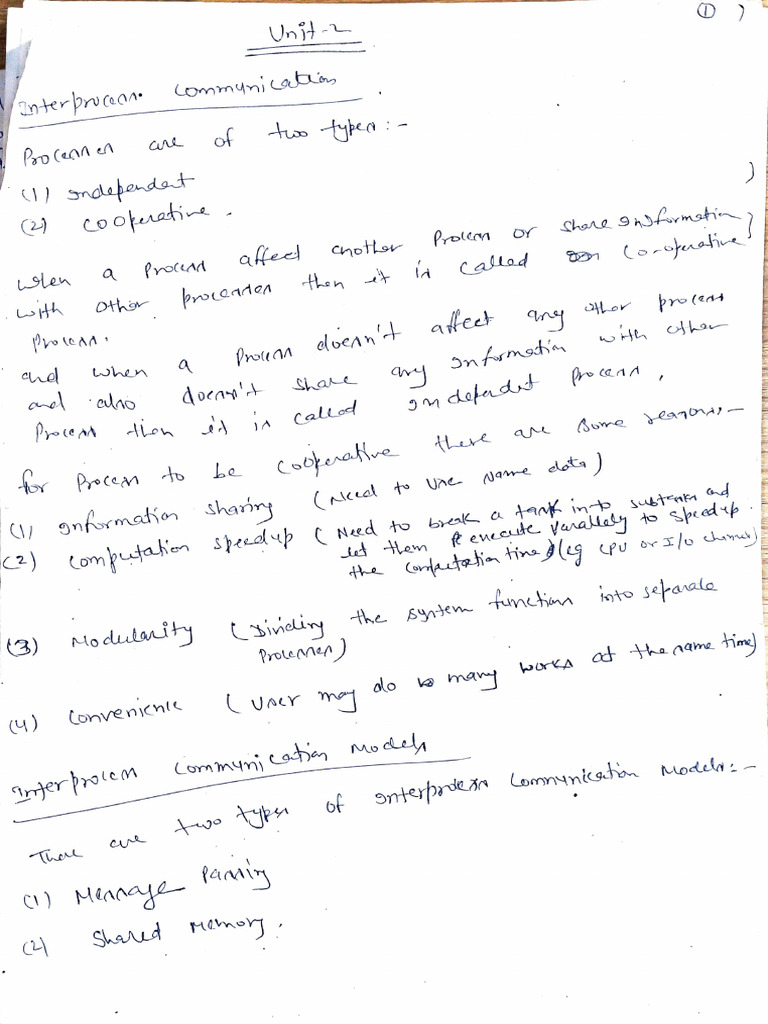 ①
Unit-2
Interprocess Communication
Processes are of two types:-
(1) Independent
(2) Cooperative.
When a Process affect another Process or share Information
with other processes then it is called Co-operative
Process.
and when a Process doesn't affect any other process
and also doesn't share any Information with other
Process then it is called Independent Process.
for Process to be Cooperative there are some reasons:-
(1) Information sharing (Need to use same data)
(2) Computation speedup (Need to break a task into subtasks and
let them execute Parallely to speedup
the computation time) (eg CPU or I/O channels)
(3) Modularity (Dividing the system function into separate
Processes)
(4) Convenience (User may do many works at the same time)
Interprocess Communication Models
There are two types of Interprocess Communication Models:-
(1) Message Passing
(2) Shared Memory.